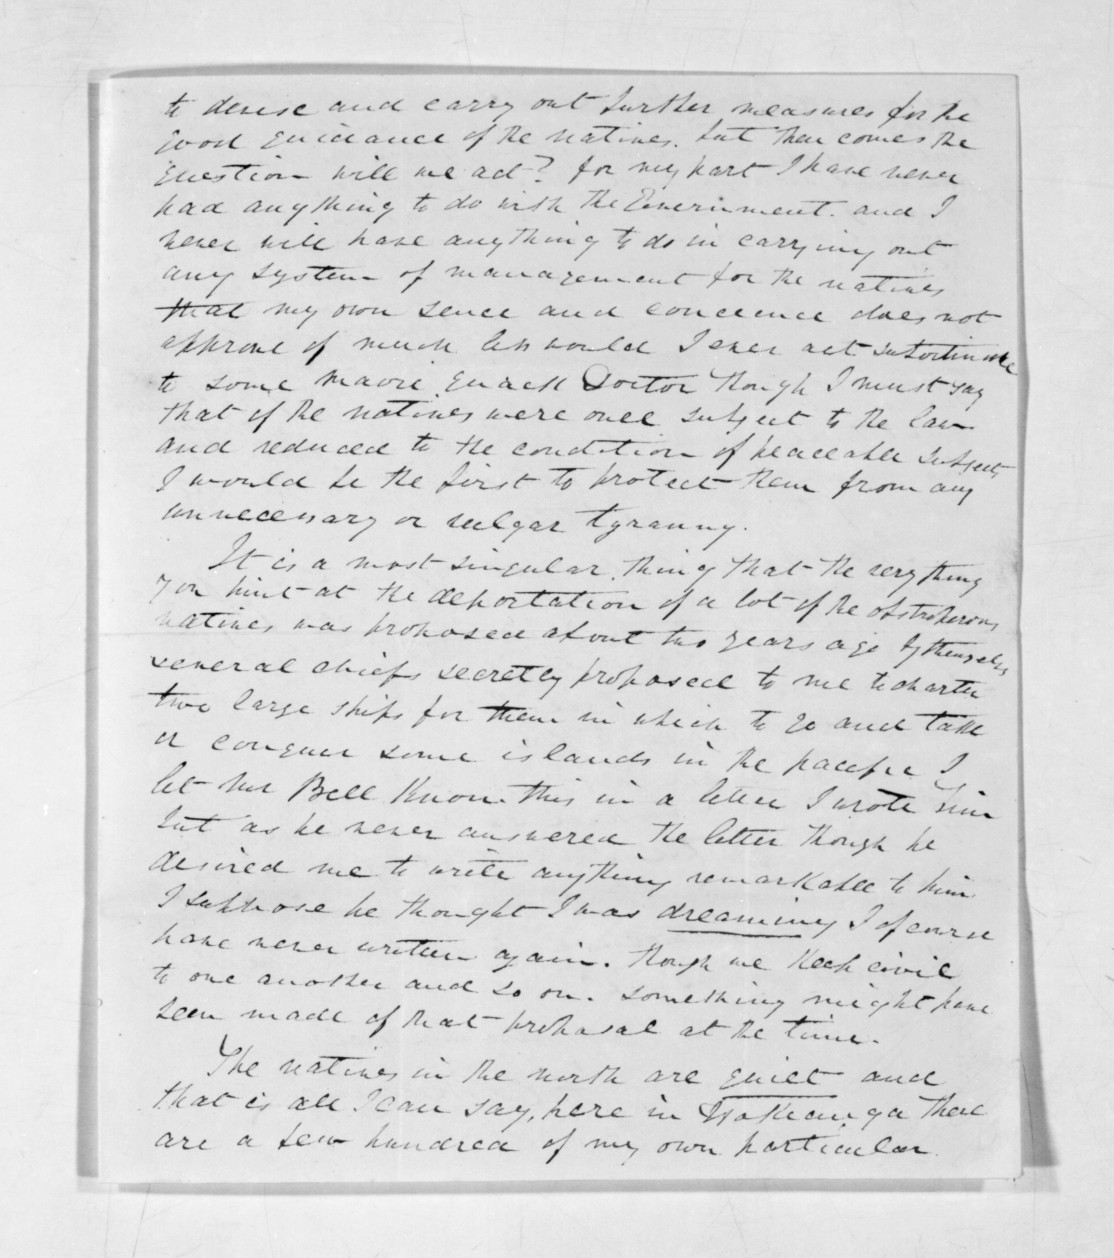 to devise and carry out further measures for the
good guidance of the natives. but then comes the
question will we act? for my part I have never
had anything to do with the Government. and I
never will have anything to do in carrying out
any system of management for the natives
that my own sence and concience does not
approve of much less would I ever act subordinate
to some maori quack Doctor though I must say
that if the natives were once subject to the law
and reduced to the condition of peaceable subjects
I would be the first to protect them from any
unnecessary or vulgar tyranny.
It is a most singular thing that the very thing
you hint at the deportation of a lot of the obstroperous
natives was proposed about two years ago by themselves
several chiefs secretly proposed to me to charter
two large ships for them in which to go and take
or conquer some islands in the pacific I
let Mr Bell Know this in a letter I wrote him
but as he never answered the letter though he
desired me to write anything remarkable to him
I suppose he thought I was dreaming I of course
have never written again. though we Keep civil
to one another and so on. something might have
been made of that proposal at the time.
The natives in the north are quiet and
that is all I can say, here in Hokianga there
are a few hundred of my own particular